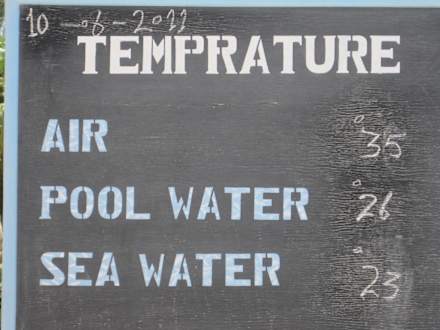 10-08-2011
TEMPRATURE
AIR °35
POOL WATER °26
SEA WATER °23